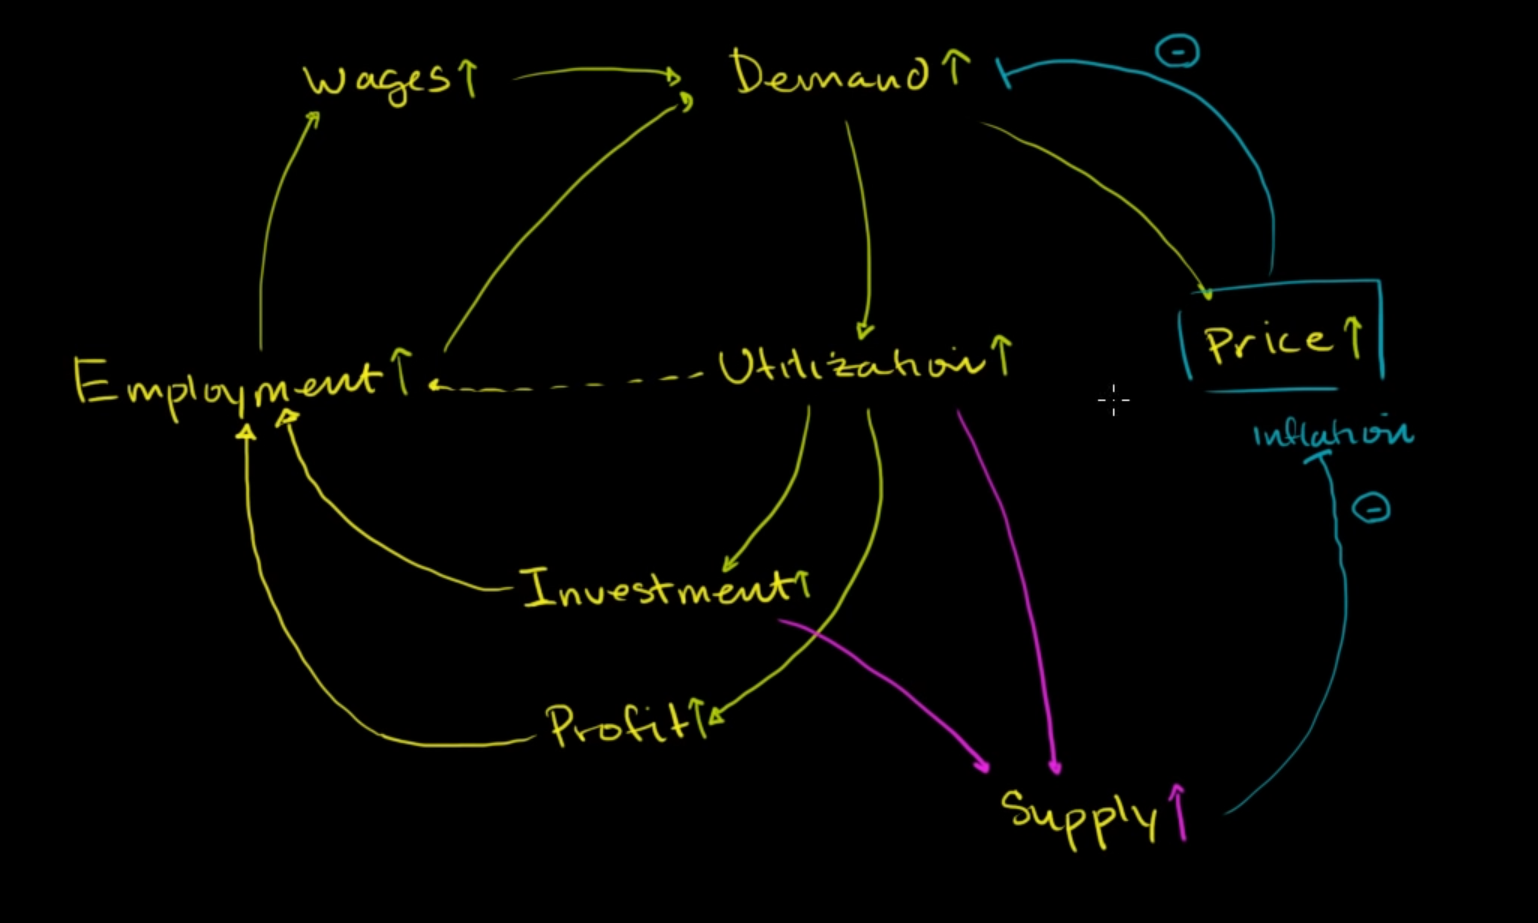 Wages↑
Demand↑
-
Employment↑
Utilization↑
Price↑
Inflation
-
Investment↑
Profit↑
Supply↑